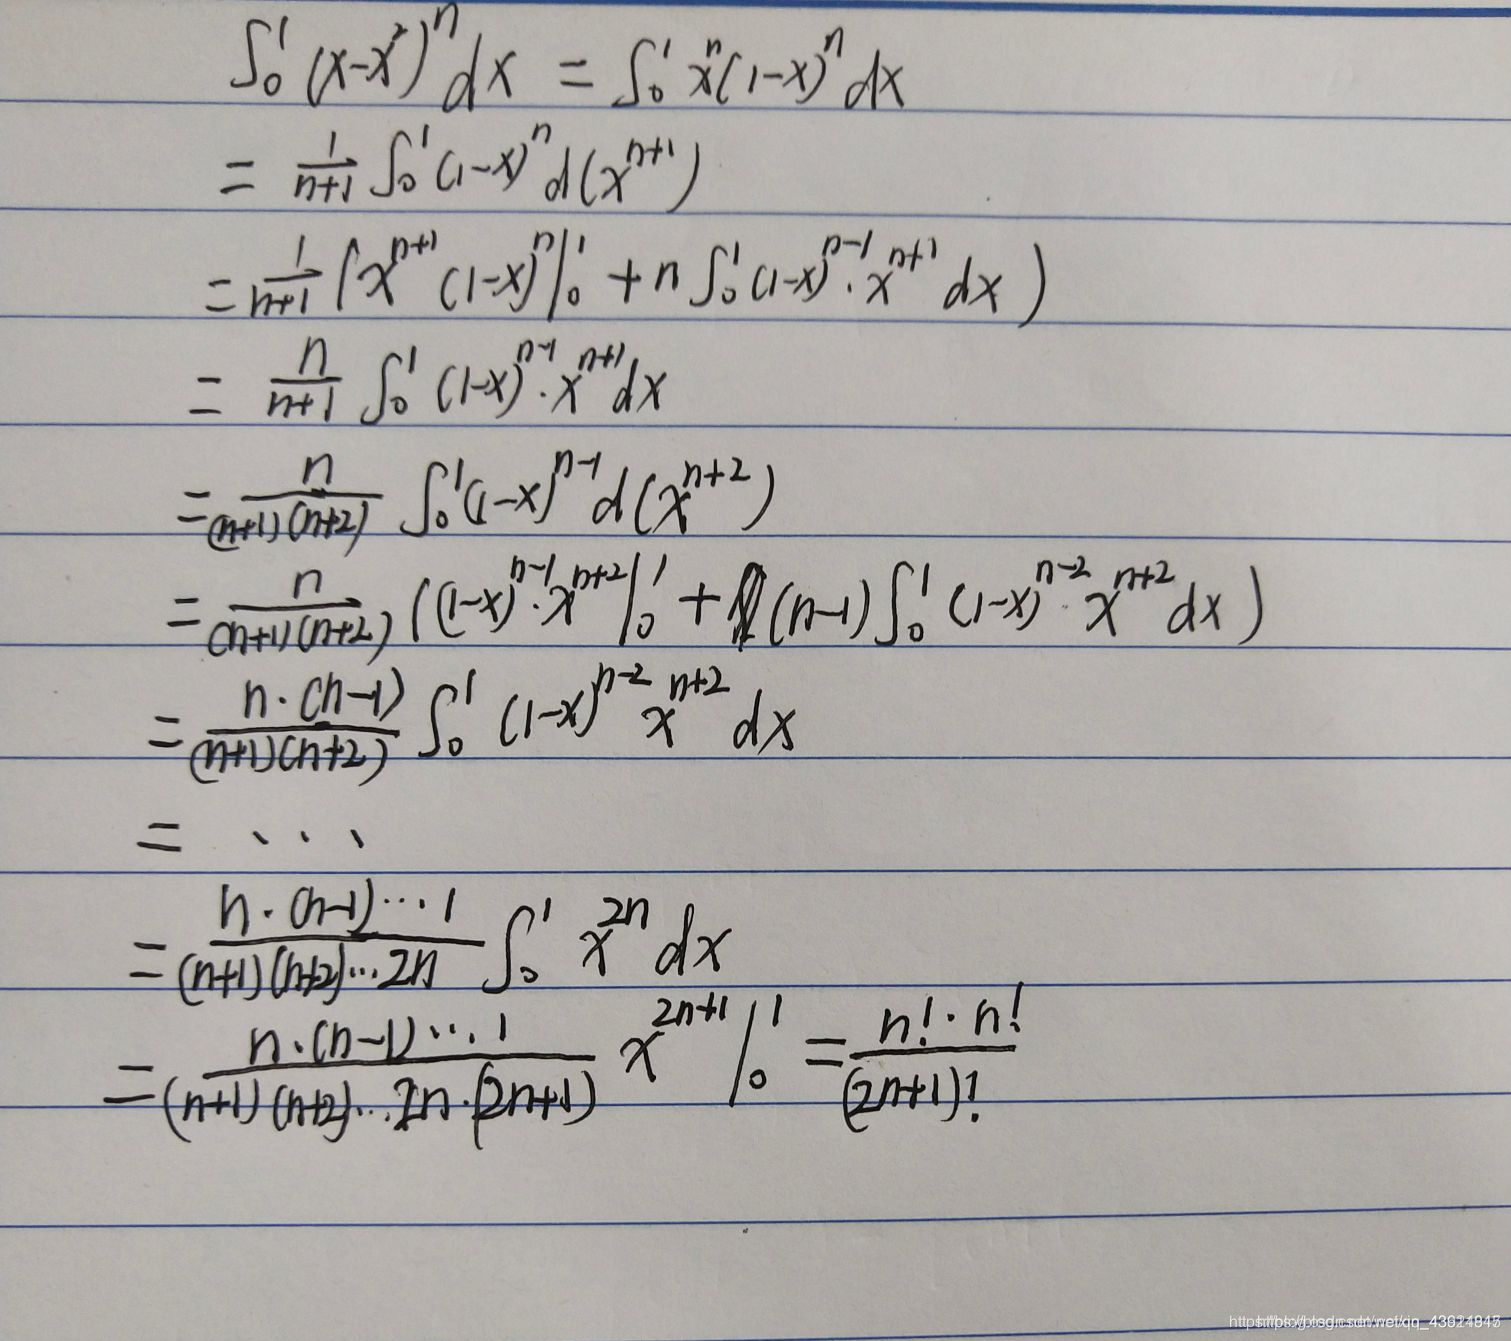 ∫₀¹ (x-x²)ⁿ dx = ∫₀¹ xⁿ(1-x)ⁿ dx
= 1/(n+1) ∫₀¹ (1-x)ⁿ d(xⁿ⁺¹)
= 1/(n+1) (xⁿ⁺¹ (1-x)ⁿ |₀¹ + n ∫₀¹ (1-x)ⁿ⁻¹ · xⁿ⁺¹ dx)
= n/(n+1) ∫₀¹ (1-x)ⁿ⁻¹ · xⁿ⁺¹ dx
= n/((n+1)(n+2)) ∫₀¹ (1-x)ⁿ⁻¹ d(xⁿ⁺²)
= n/((n+1)(n+2)) ((1-x)ⁿ⁻¹ · xⁿ⁺² |₀¹ + (n-1) ∫₀¹ (1-x)ⁿ⁻² xⁿ⁺² dx)
= n·(n-1)/((n+1)(n+2)) ∫₀¹ (1-x)ⁿ⁻² xⁿ⁺² dx
= ...
= n·(n-1)...1/((n+1)(n+2)...2n) ∫₀¹ x²ⁿ dx
= n·(n-1)...1/((n+1)(n+2)...2n·(2n+1)) x²ⁿ⁺¹ |₀¹ = n!·n!/(2n+1)!